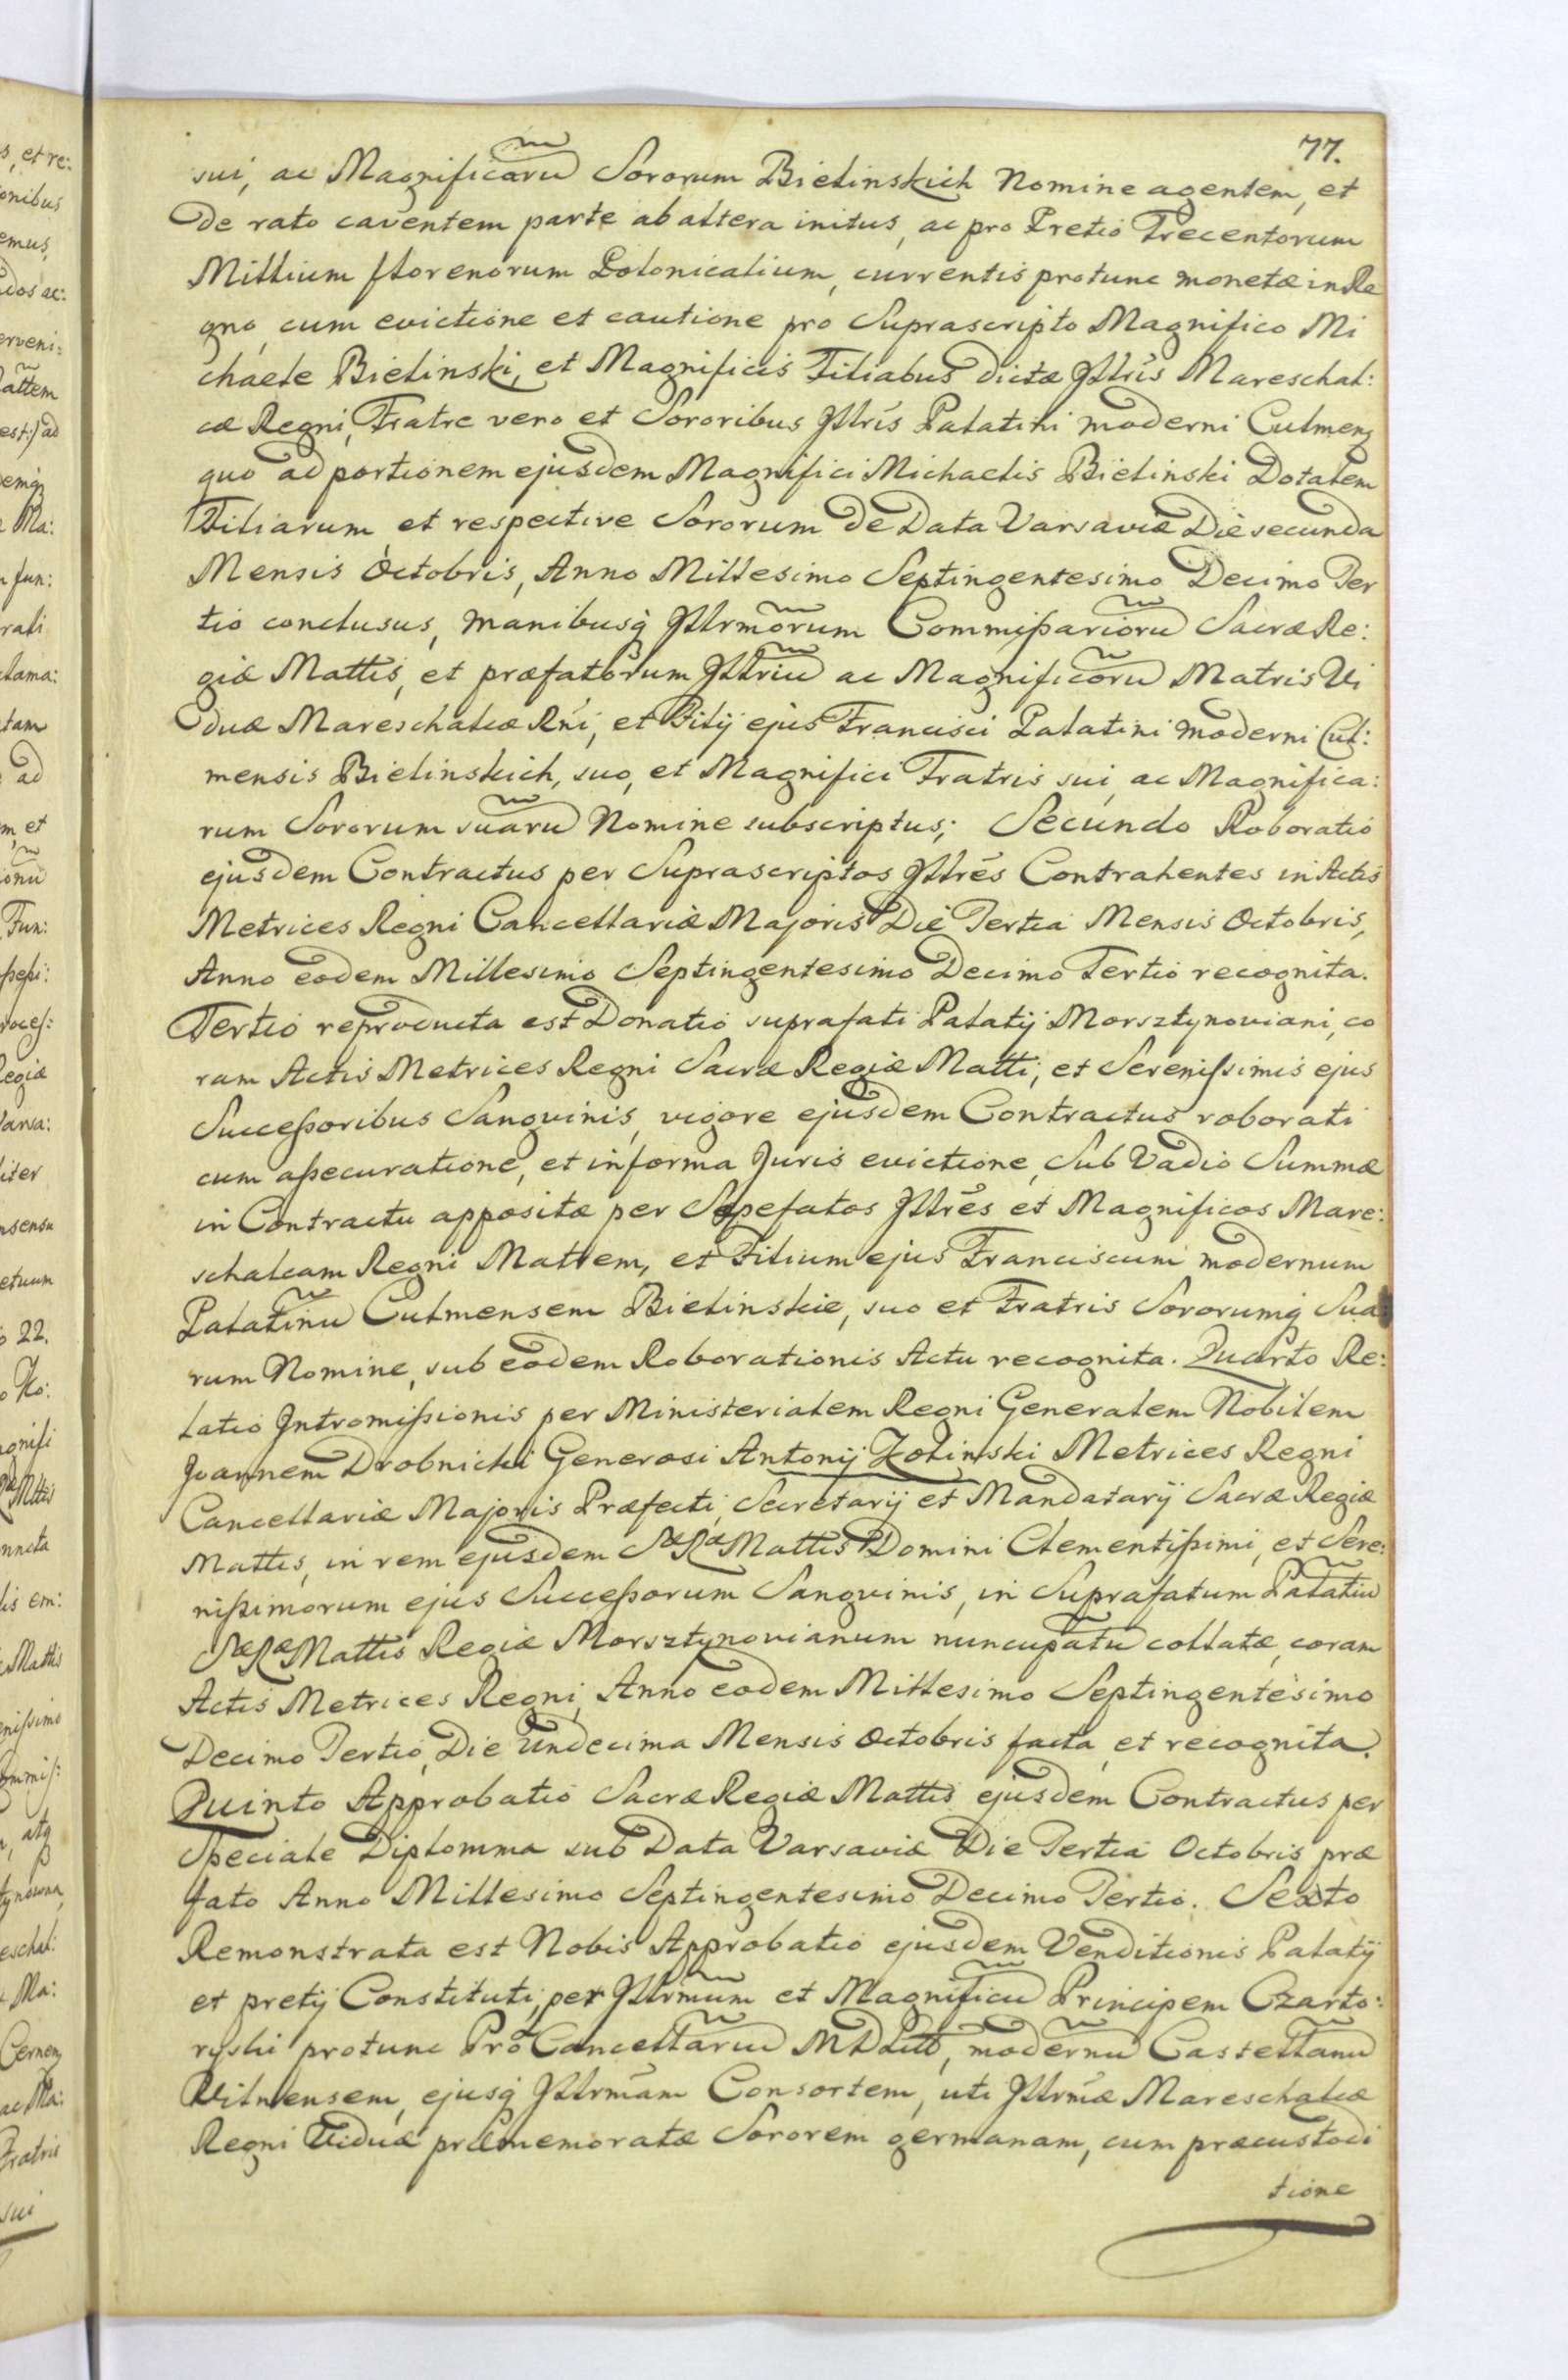 77.
sui, ac Magnificarũ Sororum Bielinskich Nomine agentem, et
de rato caventem parte ab altera initus, ac pro Pretio Trecentorum
Millium florenorum Polonicalium, currentis protunc monetæ in Re
gno, cum evictione et cautione pro Suprascripto Magnifico Mi
chaele Bielinski, et Magnificis Filiabus dictæ Jllris Mareschal:
cæ Regni, Fratre vero et Sororibus Jllris Palatini moderni Culmenȝ
quo ad portionem ejusdem Magnifici Michaelis Bielinski Dotalem
Filiarum, et respective Sororum de Data Varsaviæ Die secunda
Mensis Octobris, Anno Millesimo Septingentesimo Decimo Ter
tio conclusus, manibusq̃ Jllrmõrum Commißariorũ Sacræ Re:
giæ Mattis, et præfatorum Jllriũ ac Magnificorũ Matris Vi
duæ Mareschalcæ Rni, et Filij ejus Francisci Palatini moderni Cul:
mensis Bielinskich, suo, et Magnifici Fratris sui, ac Magnifica:
rum Sororum suarũ Nomine subscriptus; Secundo Roboratio
ejusdem Contractus per Suprascriptos Jllrẽs Contrahentes in Actis
Metrices Regni Cancellariæ Majoris Die Tertia Mensis Octobris,
Anno eodem Millesimo Septingentesimo Decimo Tertio recognita.
Tertio reproducta est Donatio suprafati Palatij Morsztynoviani, co
ram Actis Metrices Regni Sacræ Regiæ Matti, et Sereniſsimis ejus
Succeßoribus Sangvinis, vigore ejusdem Contractus roborati
cum aßecuratione, et in forma Juris evictione, Sub Vadio Summæ
in Contractu appositæ per Sæpefatos Jllrẽs et Magnificos Mare:
schalcam Regni Matrem, et Filium ejus Franciscum modernum
Palatinũ Culmensem Bielinskie, suo et Fratris Sororumq̃ Sua
rum Nomine, sub eodem Roborationis Actu recognita. Quarto Re:
latio Jntromißionis per Ministerialem Regni Generalem Nobilem
Joannem Drobnicki Generosi Antonij Zolinski Metrices Regni
Cancellariæ Majoris Præfecti, Secretarij et Mandatarij Sacræ Regiæ
Mattis, in rem ejusdem Sæ Ræ Mattis Domini Clementißimi, et Sere:
nißimorum ejus Succeßorum Sangvinis, in Suprafatum Palatiũ
Sæ Ræ Mattis Regiæ Morsztynovianum nuncupatũ collatæ, coram
Actis Metrices Regni, Anno eodem Millesimo Septingentesimo
Decimo Tertio, Die Undecima Mensis Octobris facta, et recognita.
Quinto Approbatio Sacræ Regiæ Mattis ejusdem Contractus per
Speciale Diplomma sub Data Varsaviæ Die Tertia Octobris præ
fato Anno Millesimo Septingentesimo Decimo Tertio. Sexto
Remonstrata est Nobis Approbatio ejusdem Venditionis Palatij
et pretij Constituti, per Jllrmũm et Magnificũ Principem Czarto:
ryski protunc Pro Cancellariũ MDLitt, modernũ Castellanũ
Vilnensem, ejusq̃ Jllrmãm Consortem, uti Jllrmæ Mareschalcæ
Regni Viduæ præmemoratæ Sororem germanam, cum præcustodi
tione